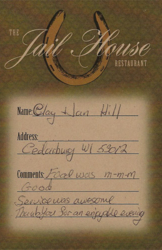 THE
Jail House
RESTAURANT
Name: Clay + Jan Hill
Address:
Cedarburg WI 53012
Comments: Food was m-m-m
Good
Service was awesome
Thank you for an enjoyable evening